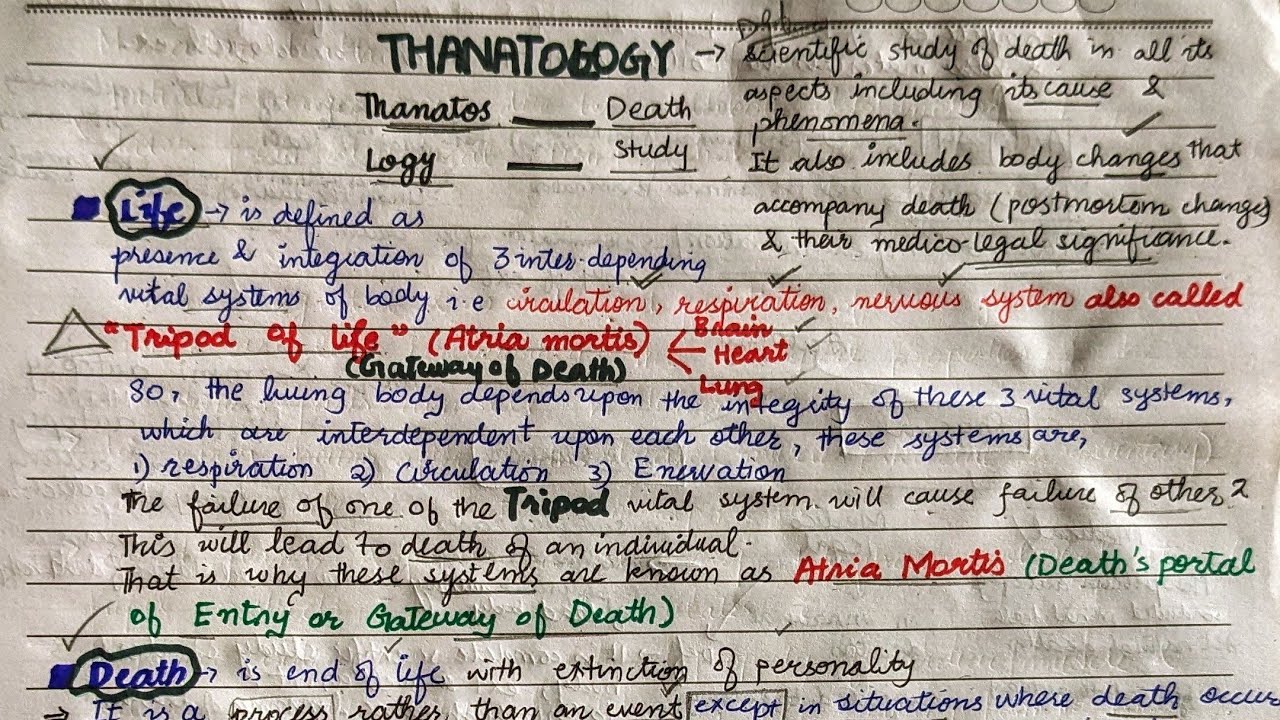 Defn
THANATOLOGY → scientific study of death in all its
aspects including its cause &
phenomena.
Thanatos — Death
Logy — Study
It also includes body changes that
accompany death (postmortom changes)
& their medico-legal significance.
Life → is defined as
presence & integration of 3 inter-depending
vital systems of body i.e circulation, respiration, nervous system also called
"Tripod of life" (Atria mortis) Brain
Heart
Lung
(Gateway of Death)
So, the living body depends upon the integrity of these 3 vital systems,
which are interdependent upon each other, these systems are,
1) respiration 2) Circulation 3) Enervation
The failure of one of the Tripod vital system will cause failure of other 2
This will lead to death of an individual.
That is why these systems are known as Atria Mortis (Death's portal
of Entry or Gateway of Death)
Death → is end of life with extinction of personality
⇒ It is a process rather than an event except in situations where death occur